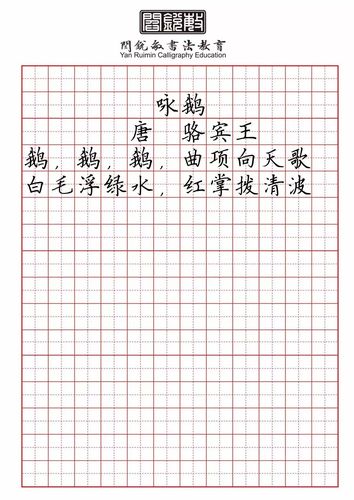 閆銳敏
閆銳敏書法教育
Yan Ruimin Calligraphy Education
咏鹅
唐 骆宾王
鹅，鹅，鹅，曲项向天歌
白毛浮绿水，红掌拨清波